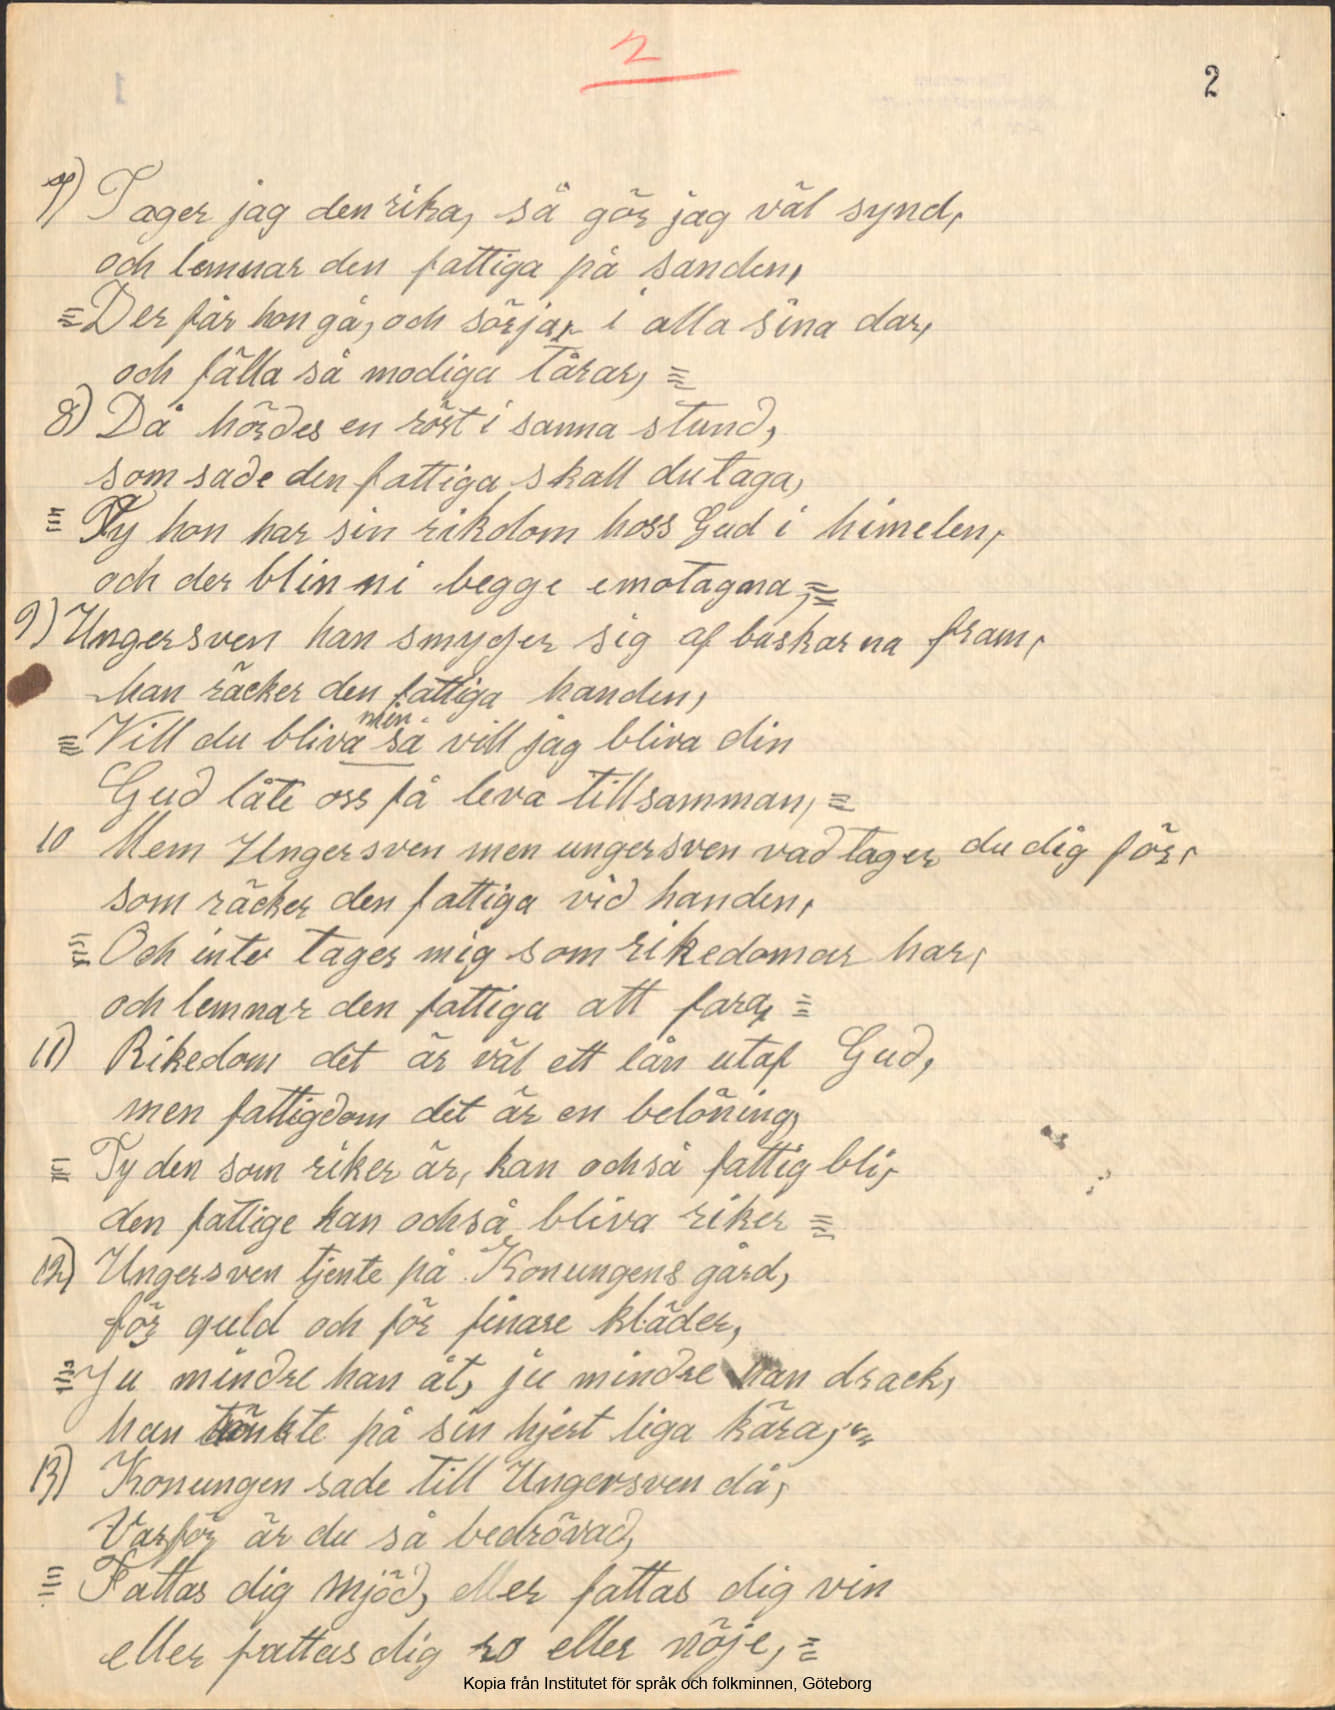 2
2
7) Tager jag den rika, så gör jag väl synd,
och lemnar den fattiga på sanden,
Der får hon gå, och sörja, i alla sina dar,
och fälla så modiga tårar,
8) Då hördes en röst i samma stund,
som sade den fattiga skall du taga,
Ty hon har sin rikdom hoss Gud i himelen,
och der blin ni begge emotagna,
9) Ungersven han smyger sig af buskarna fram,
han räcker den fattiga handen,
Vill du bliva min så vill jag bliva din
Gud låte oss få leva tillsamman,
10 Mem Ungersven men ungersven vad tager du dig för,
som räcker den fattiga vid handen,
Och inte tager mig som rikedomar har,
och lemnar den fattiga att fara,
11) Rikedom det är väl ett lån utaf Gud,
men fattigdom det är en belöning,
Ty den som riker är, kan också fattig bli,
den fattige kan också bliva riker
12) Ungersven tjente på Konungens gård,
för guld och för finare kläder,
Ju mindre han åt, ju mindre han drack,
han tänkte på sin hjertliga kära,
13) Konungen sade till Ungersven då,
Varför är du så bedrövad,
Fattas dig mjöd, eller fattas dig vin
eller fattas dig ro eller nöje,
Kopia från Institutet för språk och folkminnen, Göteborg